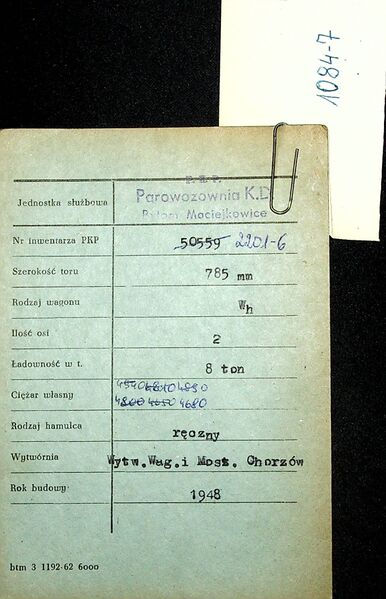 1084-7
P.K.P.
Jednostka służbowa Parowozownia K.D.
Bytom Maciejkowice
Nr inwentarza PKP 50559 2201-6
Szerokość toru 785 mm
Rodzaj wagonu Wh
Ilość osi 2
Ładowność w t. 8 ton
4540 4810 4890
Ciężar własny
4800 4650 4680
Rodzaj hamulca ręczny
Wytwórnia Wytw.Wag.i Most. Chorzów
Rok budowy 1948
btm 3 1192-62 6000